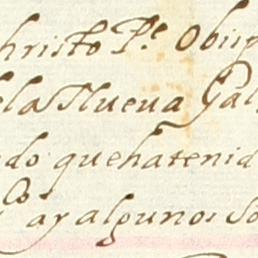 christo Pe. Obisp
ela Nueva Gal
do que ha tenid
Co ay algunos so